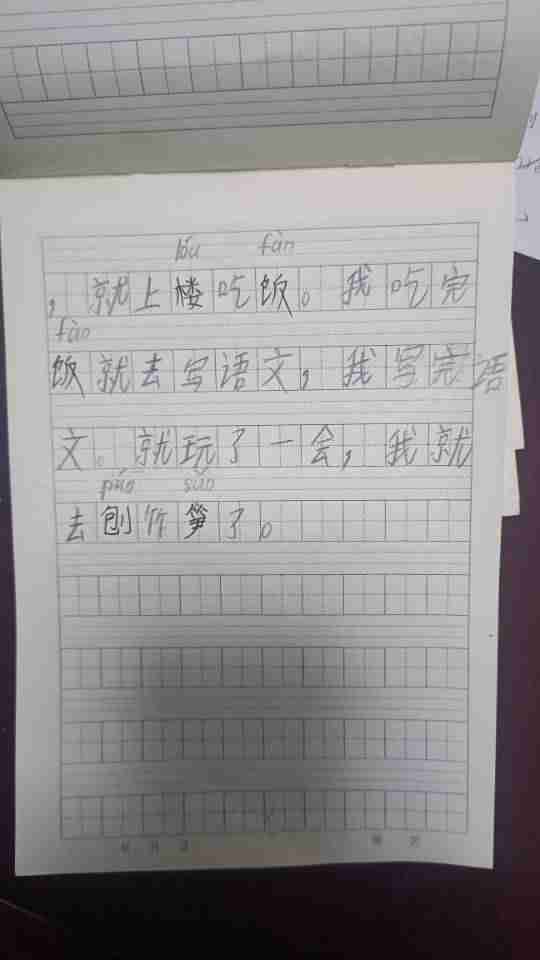 lóu fàn
，就上楼吃饭。我吃完
fàn
饭就去写语文，我写完语
文。就玩了一会，我就
páo sǔn
去刨竹笋了。